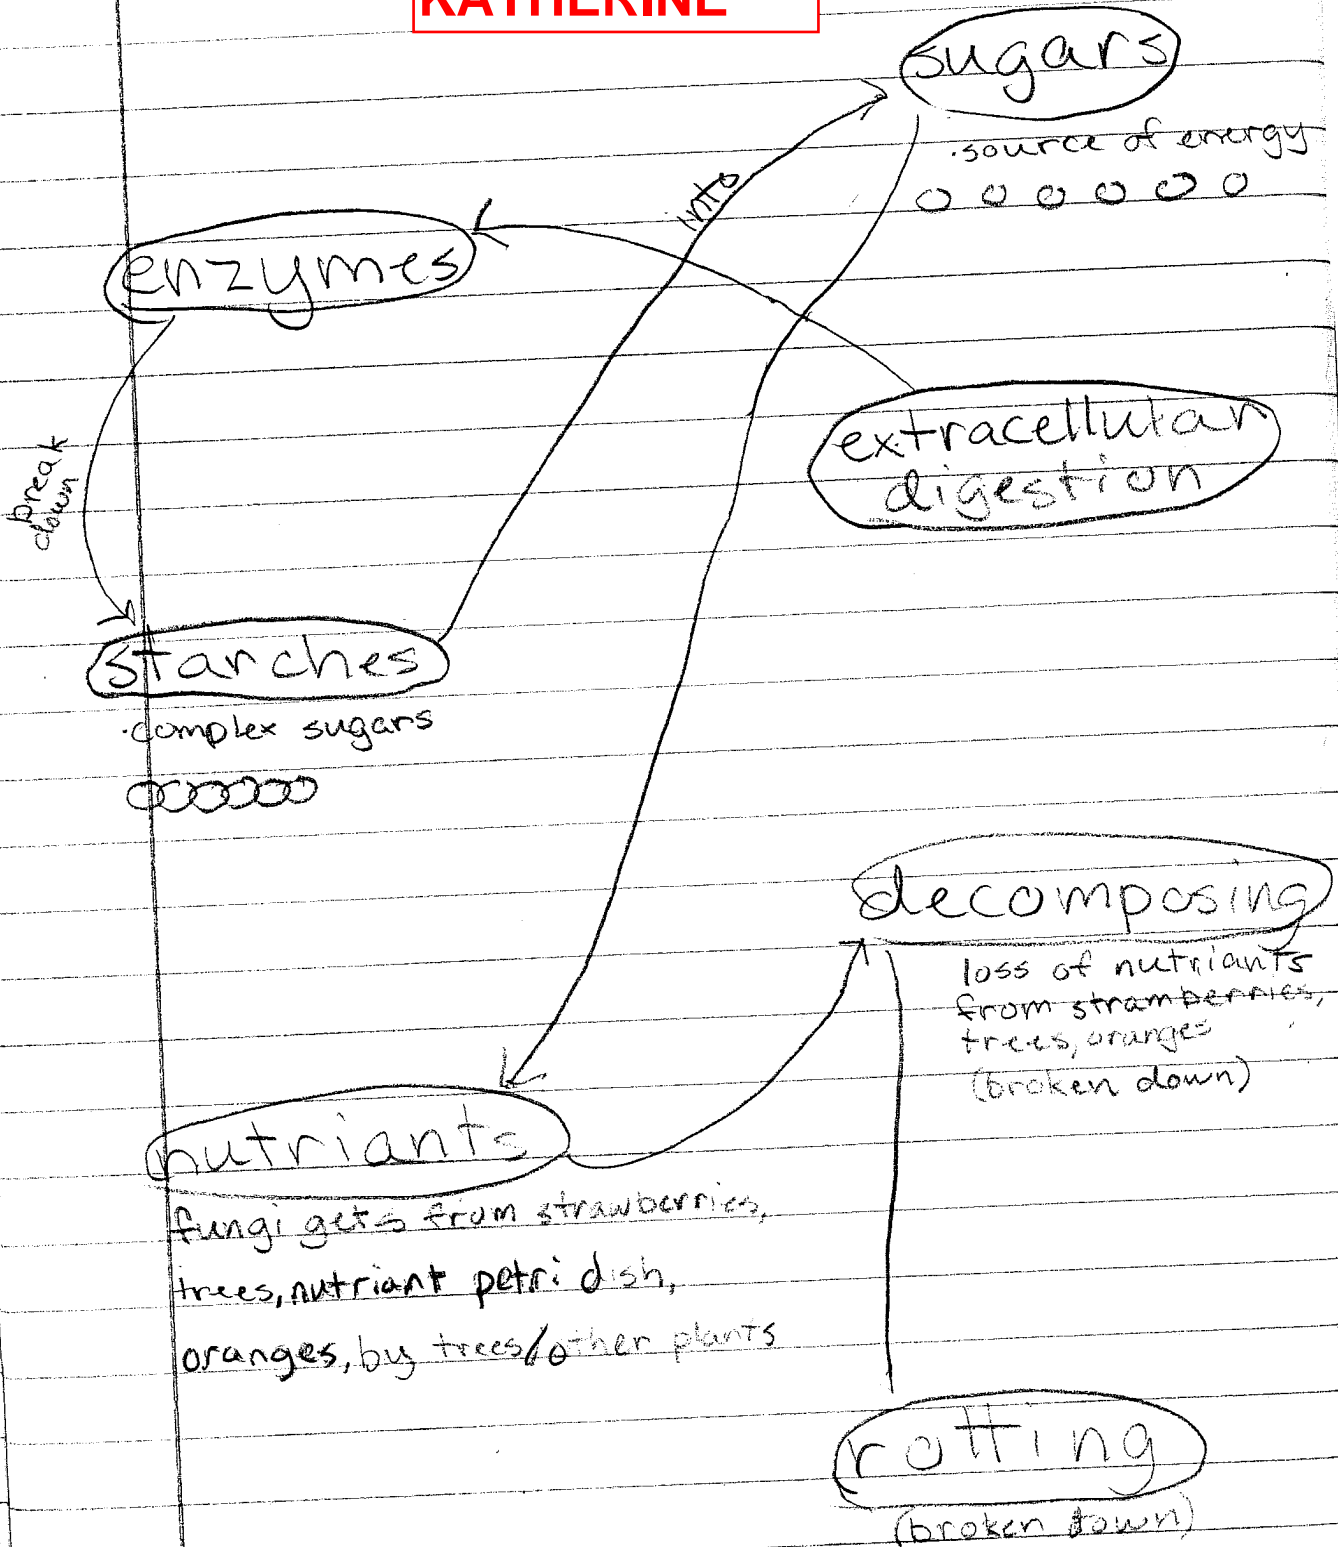 KATHERINE
sugars
·source of energy
into
enzymes
extracellular
digestion
break
down
starches
·complex sugars
decomposing
loss of nutriants
from stramberries,
trees, oranges
(broken down)
nutriants
fungi gets from strawberries,
trees, nutriant petri dish,
oranges, by trees/other plants
rotting
(broken down)